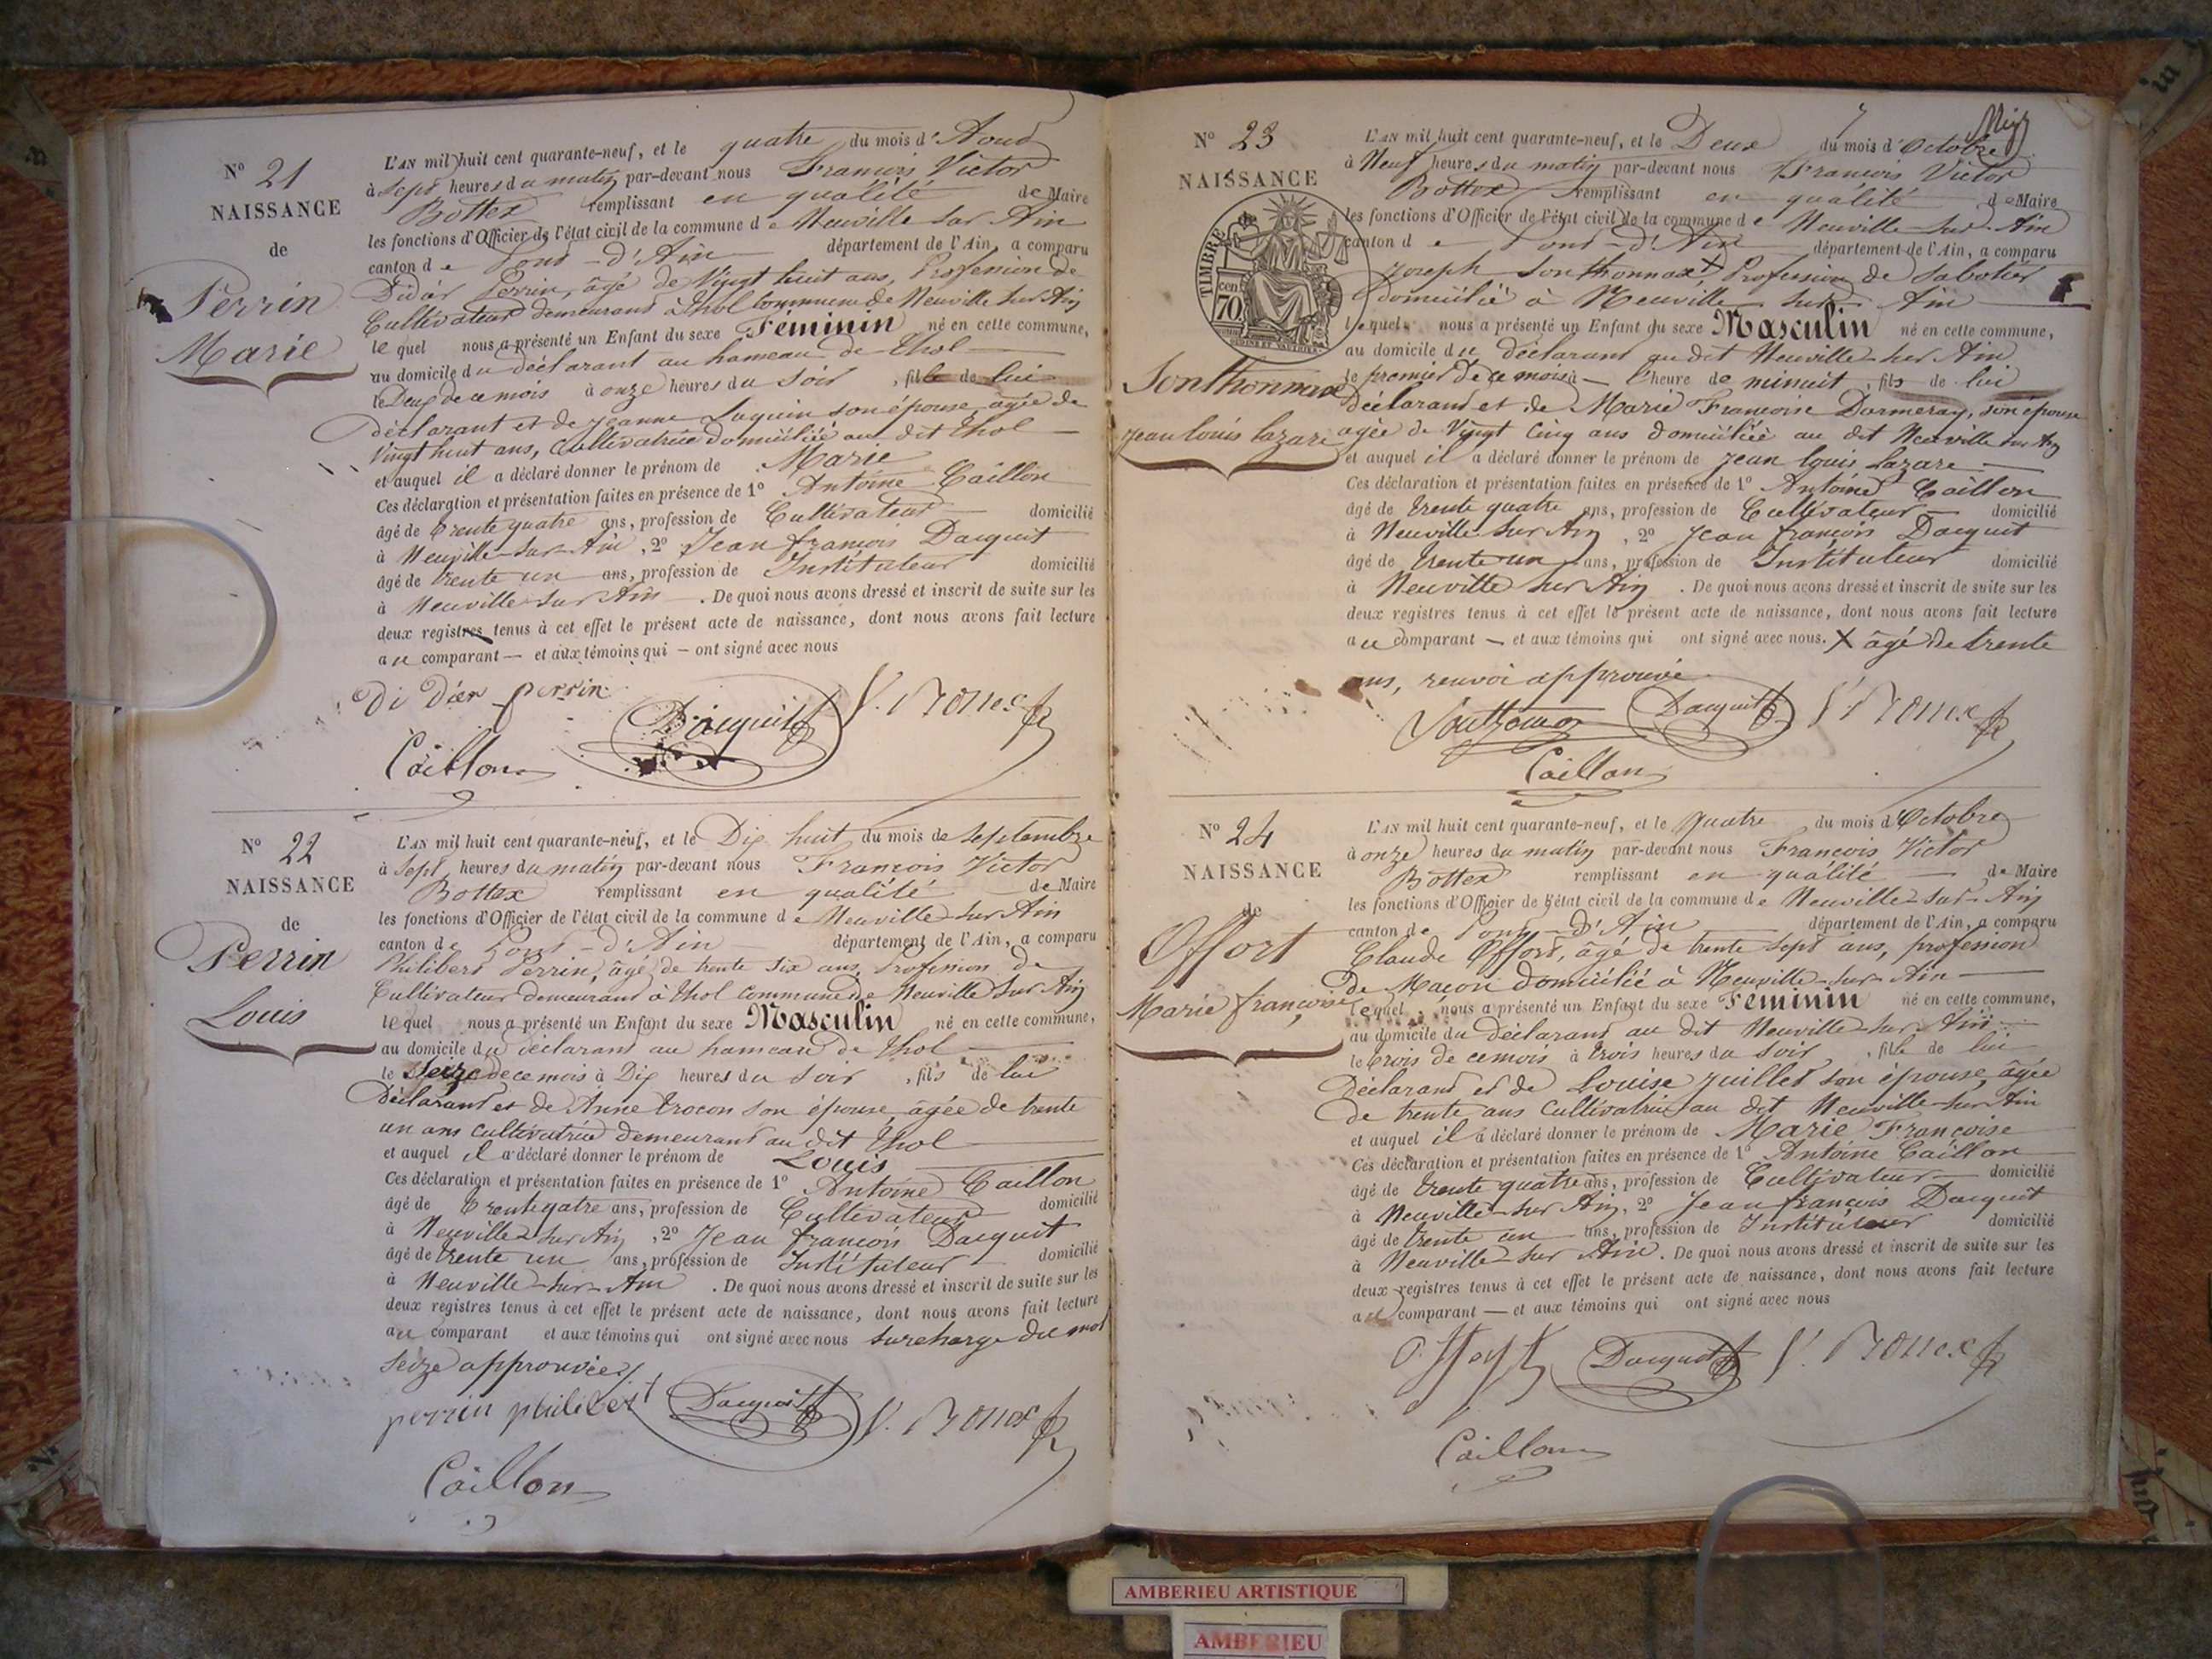 N° 21
NAISSANCE
de
Perrin
Marie
L'AN mil huit cent quarante-neuf, et le quatre du mois d'Aout
à sept heures du matin par-devant nous François Victor
Bottex remplissant en qualité de Maire
les fonctions d'Officier de l'état civil de la commune de Neuville sur Ain
canton de Pont-d'Ain département de l'Ain, a comparu
Didier Perrin, âgé de Vingt huit ans, Profession de
Cultivateur demeurant à Thol commune de Neuville sur Ain
lequel nous a présenté un Enfant du sexe Féminin né en cette commune,
au domicile du déclarant au hameau de Thol
le Deux de ce mois à onze heures du soir, fille de lui
déclarant et de Jeanne son épouse, âgée de
Vingt huit ans, Cultivatrice domiciliée au dit Thol
et auquel il a déclaré donner le prénom de Marie
Ces déclaration et présentation faites en présence de 1° Antoine Caillon
âgé de trente quatre ans, profession de Cultivateur domicilié
à Neuville-sur-Ain, 2° Jean françois Dacquit
âgé de trente un ans, profession de Instituteur domicilié
à Neuville-sur-Ain. De quoi nous avons dressé et inscrit de suite sur les
deux registres tenus à cet effet le présent acte de naissance, dont nous avons fait lecture
au comparant — et aux témoins qui — ont signé avec nous
Di Dier perrin
Dacquit V. Bottex
Caillon
N° 22
NAISSANCE
de
Perrin
Louis
L'AN mil huit cent quarante-neuf, et le Dix huit du mois de Septembre
à Sept heures du matin par-devant nous François Victor
Bottex remplissant en qualité de Maire
les fonctions d'Officier de l'état civil de la commune de Neuville-sur Ain
canton de Pont-d'Ain département de l'Ain, a comparu
Philibert Perrin, âgé de trente six ans, Profession de
Cultivateur demeurant à Thol commune de Neuville Sur Ain
lequel nous a présenté un Enfant du sexe Masculin né en cette commune,
au domicile du déclarant au hameau de Thol
le Seize de ce mois à Dix heures du soir, fils de lui
Déclarant et de Anne trocon son épouse, âgée de trente
un ans cultivatrice demeurant au dit Thol
et auquel il a déclaré donner le prénom de Louis
Ces déclaration et présentation faites en présence de 1° Antoine Caillon
âgé de trente quatre ans, profession de Cultivateur domicilié
à Neuville sur Ain, 2° Jean françois Dacquit
âgé de trente un ans, profession de Instituteur domicilié
à Neuville-sur-Ain. De quoi nous avons dressé et inscrit de suite sur les
deux registres tenus à cet effet le présent acte de naissance, dont nous avons fait lecture
au comparant et aux témoins qui ont signé avec nous surcharge du mot
seize approuvée
perrin philibert Dacquit V. Bottex
Caillon
N° 23
NAISSANCE
de
TIMBRE
cen
70
Sonthonnax
Jean Louis Lazare
L'AN mil huit cent quarante-neuf, et le Deux du mois d'Octobre
à Neuf heures du matin par-devant nous François Victor
Bottex remplissant en qualité de Maire
les fonctions d'Officier de l'état civil de la commune de Neuville-sur-Ain
canton de Pont-d'Ain département de l'Ain, a comparu
Joseph Sonthonnax X Profession de Sabotier
domicilié à Neuville sur Ain
lequel nous a présenté un Enfant du sexe Masculin né en cette commune,
au domicile du déclarant au dit Neuville-sur Ain
le premier de ce mois à — l'heure de minuit, fils de lui
déclarant et de Marie Françoise Darmeray, son épouse
agée de Vingt Cinq ans domiciliée au dit Neuville sur Ain
et auquel il a déclaré donner le prénom de Jean Louis Lazare
Ces déclaration et présentation faites en présence de 1° Antoine Caillon
âgé de trente quatre ans, profession de Cultivateur domicilié
à Neuville sur Ain, 2° Jean françois Dacquit
âgé de trente un ans, profession de Instituteur domicilié
à Neuville sur Ain. De quoi nous avons dressé et inscrit de suite sur les
deux registres tenus à cet effet le présent acte de naissance, dont nous avons fait lecture
au comparant — et aux témoins qui ont signé avec nous. X âgé de trente
ans, renvoi approuvé
Sonthonnax Dacquit V. Bottex
Caillon
N° 24
NAISSANCE
de
Offort
Marie françoise
L'AN mil huit cent quarante-neuf, et le Quatre du mois d'Octobre
à onze heures du matin par-devant nous François Victor
Bottex remplissant en qualité de Maire
les fonctions d'Officier de l'état civil de la commune de Neuville-sur-Ain
canton de Pont-D'Ain département de l'Ain, a comparu
Claude Offort, âgé de trente sept ans, profession
de Maçon domicilié à Neuville-sur-Ain
lequel nous a présenté un Enfant du sexe Féminin né en cette commune,
au domicile du déclarant au dit Neuville-sur-Ain
le trois de ce mois à trois heures du soir, fille de lui
Déclarant et de Louise Juillet son épouse, âgée
de trente ans Cultivatrice au dit Neuville-sur Ain
et auquel il a déclaré donner le prénom de Marie Françoise
Ces déclaration et présentation faites en présence de 1° Antoine Caillon
âgé de trente quatre ans, profession de Cultivateur domicilié
à Neuville-sur Ain, 2° Jean françois Dacquit
âgé de trente un ans, profession de Instituteur domicilié
à Neuville-sur Ain. De quoi nous avons dressé et inscrit de suite sur les
deux registres tenus à cet effet le présent acte de naissance, dont nous avons fait lecture
au comparant — et aux témoins qui ont signé avec nous
Dacquit V. Bottex
Caillon
AMBERIEU ARTISTIQUE
AMBERIEU